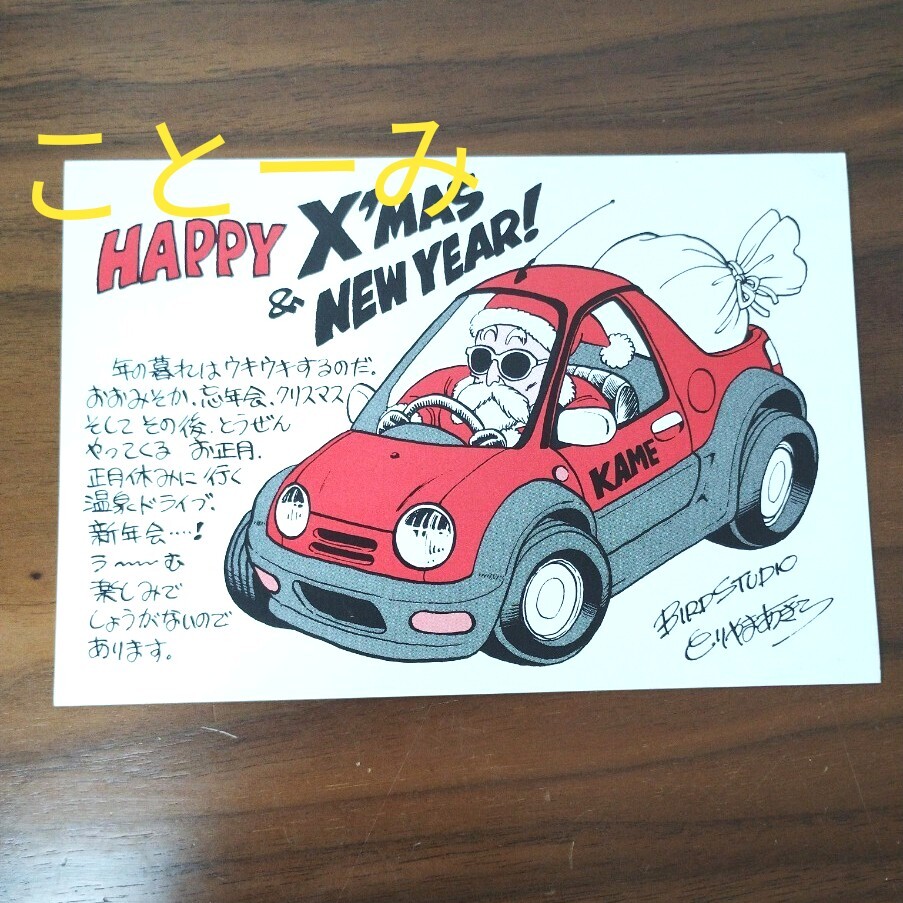 ことーみ
HAPPY X'MAS
& NEW YEAR!
年の暮れはウキウキするのだ.
おおみそか、忘年会、クリスマス
そして その後、とうぜん
やってくる お正月.
正月休みに行く
温泉ドライブ、
新年会…..!
う〜〜む
楽しみで
しょうがないので
あります。
KAME
BIRD STUDIO
とりやまあきら